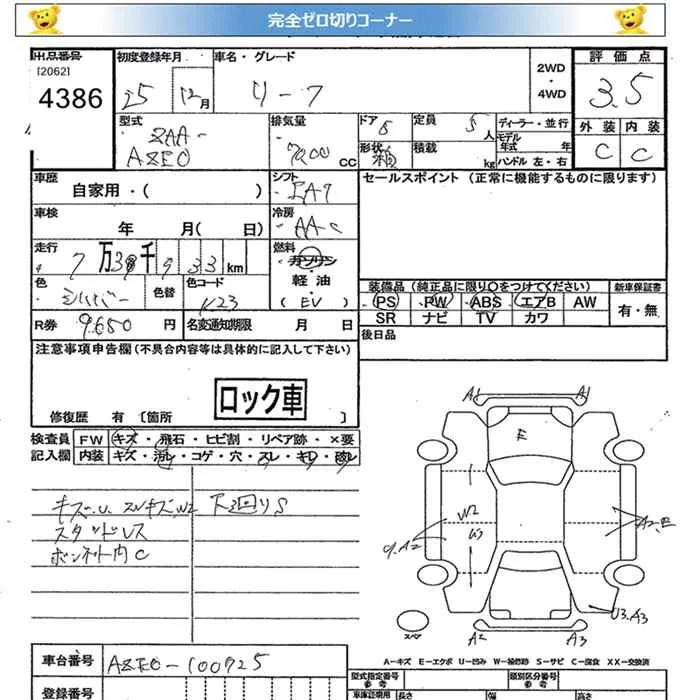 完全ゼロ切りコーナー
出品番号 初度登録年月 車名・グレード 2WD・4WD 評価点
[2062]
4386 25 12月 リーフ 3.5
型式 排気量 ドア 5 定員 5人 ディーラー・並行 外装 内装
ZAA-
AZE0 CC 形状 箱 積載 kg モデル年式 年 ハンドル 左・右 C C
車歴 シフト セールスポイント (正常に機能するものに限ります)
自家用・( ) FAT
車検 冷房
年 月( 日) AAC
走行 燃料
7万3千933km ガソリン・軽・油・(EV)
色 色替 色コード 装備品 (純正品に限り○をつけてください) 新車保証書
シルバー K23 PS PW ABS エアB AW 有・無
SR ナビ TV カワ
R券 9,650円 名変通知期限 月 日 後日品
注意事項申告欄 (不具合内容等は具体的に記入して下さい)
ロック車
修復歴 有 [箇所 ]
検査員 FW キズ・飛石・ヒビ割・リペア跡・×要
記入欄 内装 キズ・汚レ・コゲ・穴・スレ・キレ・破レ
キズ.U. スレキズ.W2 下廻りS
スタッドレス
ボンネット内C
A1 A1
E
W2 A2.E
A2
U3.A3
スペア A2 A3
A-キズ E-エクボ U-凹み W-補修跡 S-サビ C-腐食 XX-交換済
車台番号 AZE0-100925
型式指定番号 類別区分番号
参考 参考
登録番号 車庫証明用 長さ 幅 高さ